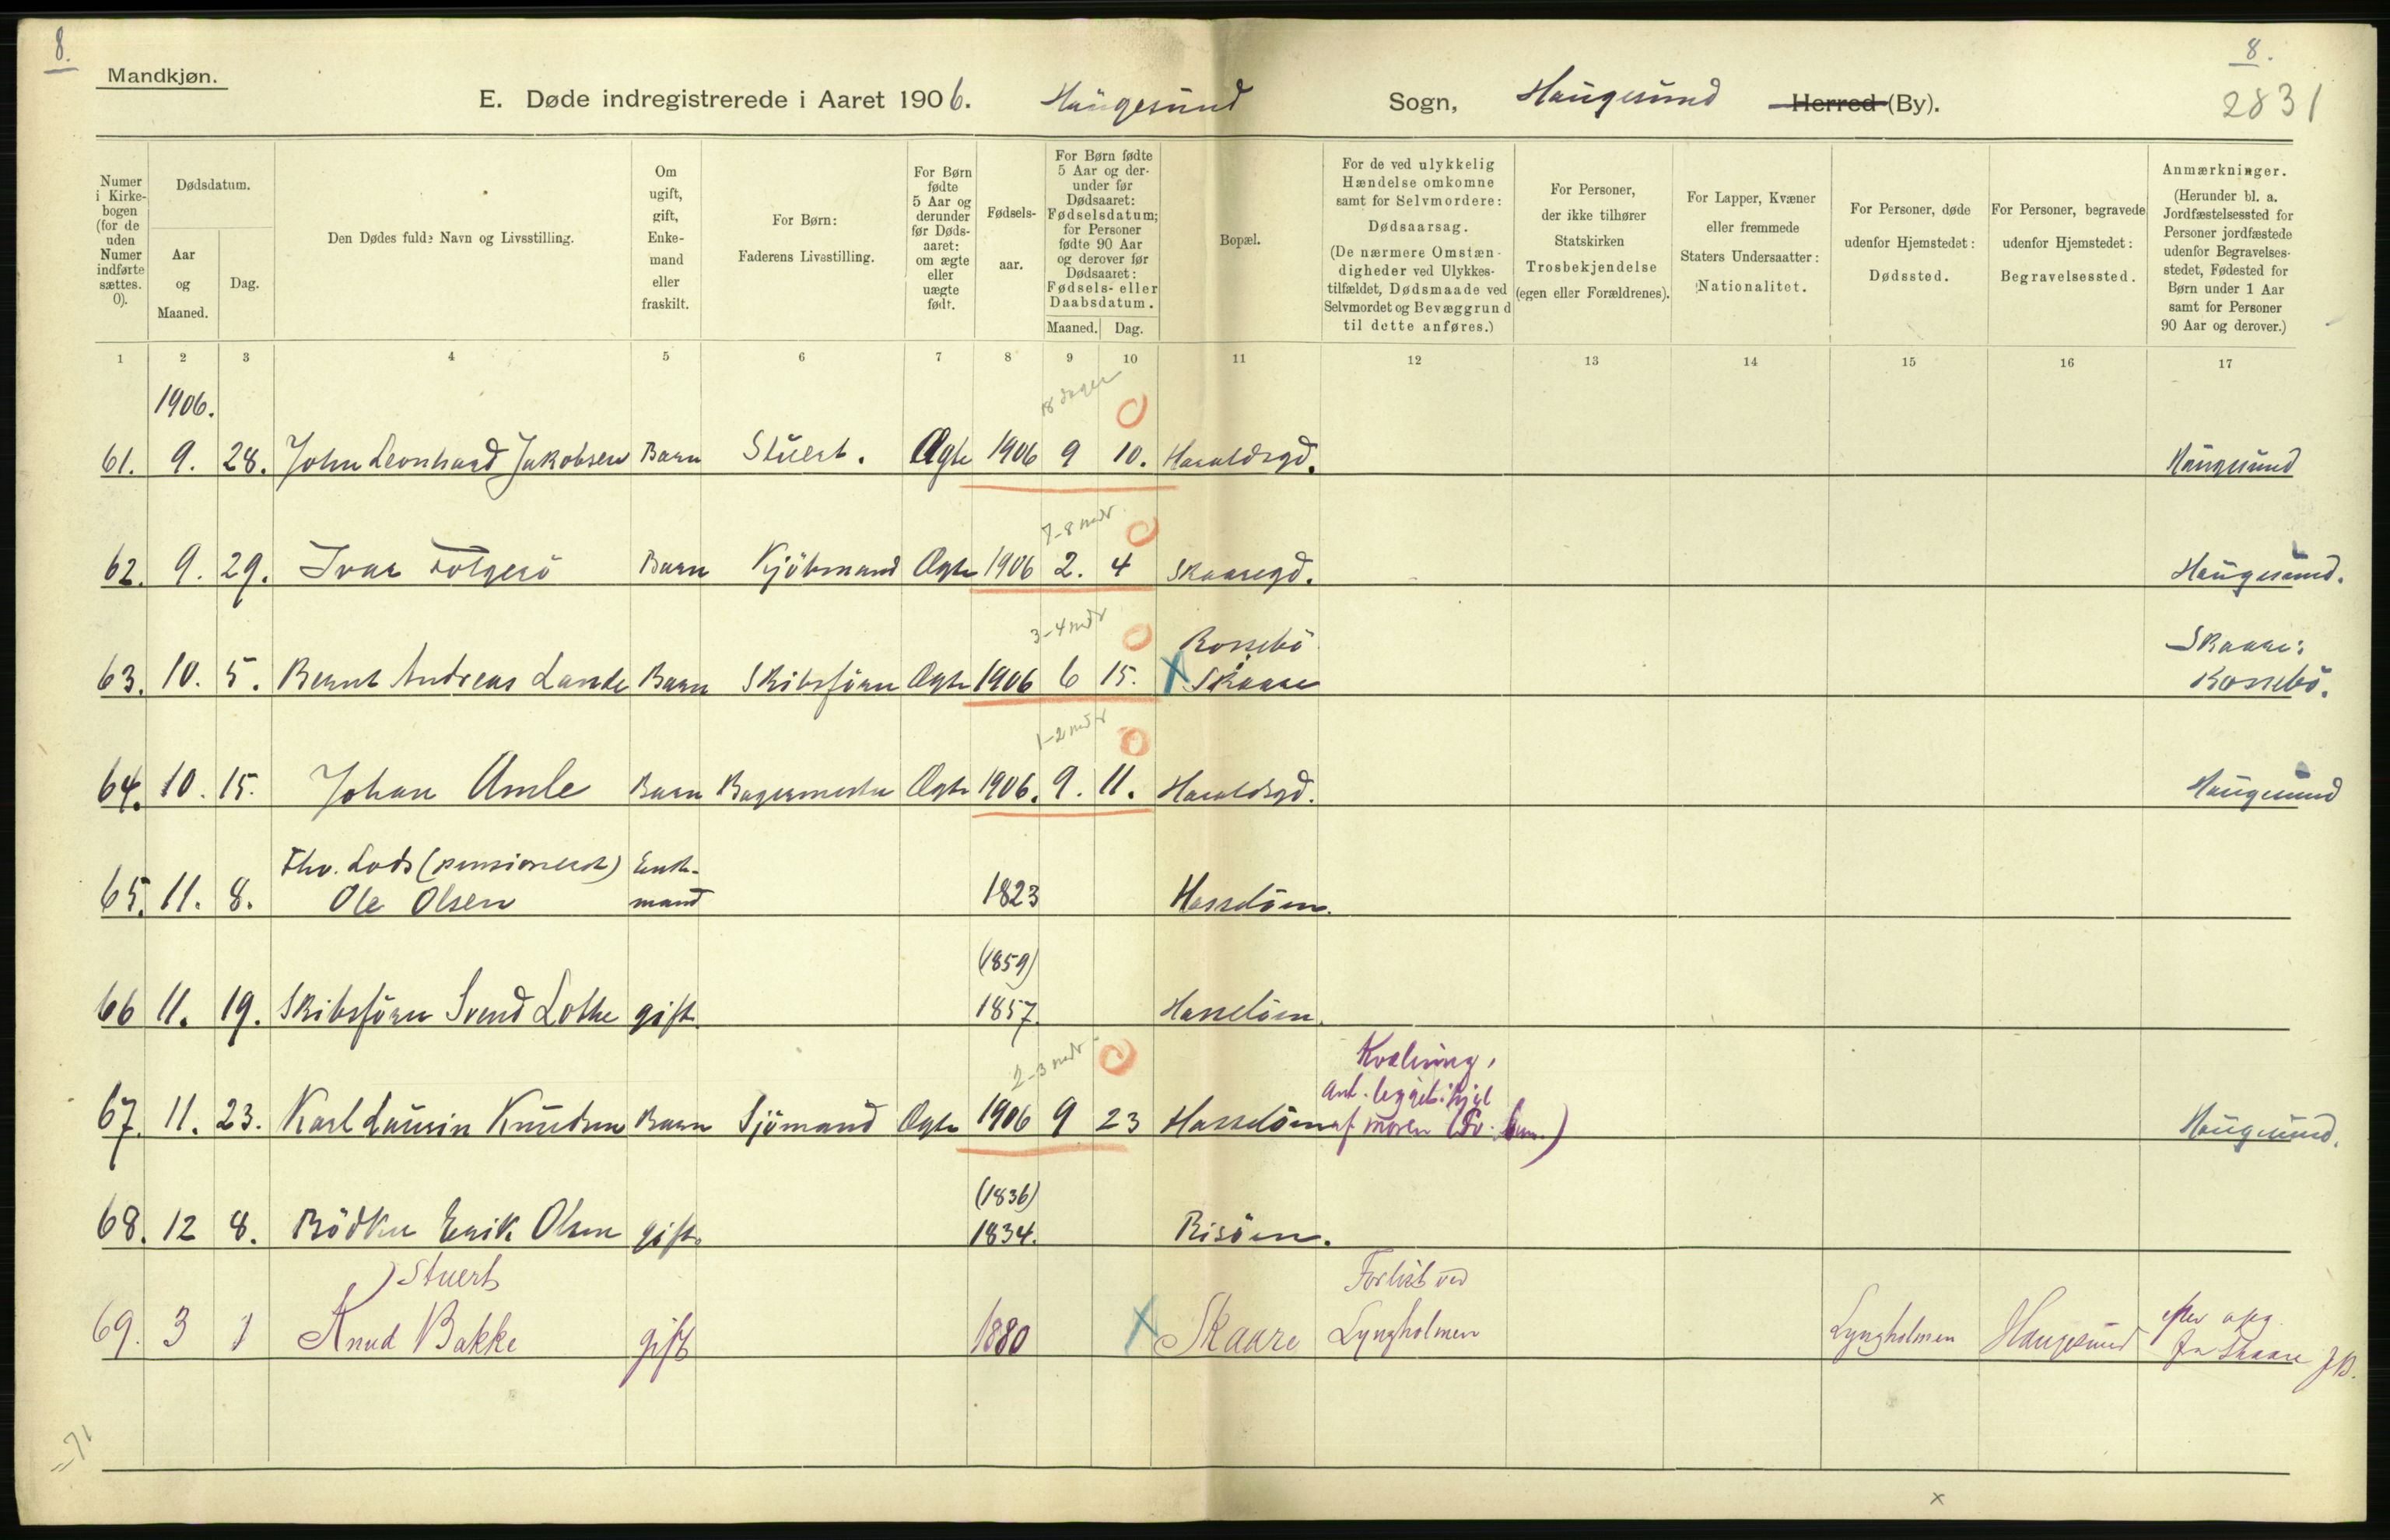 8.
8.
2831
Mandkjøn.
E. Døde indregistrerede i Aaret 1906. Haugesund Sogn, Haugesund Herred (By).
Numer i Kirkebogen (for de uden Numer indførte sættes. 0).
Dødsdatum.
Aar og Maaned.
Dag.
Den Dødes fulde Navn og Livsstilling.
Om ugift, gift, Enkemand eller fraskilt.
For Børn: Faderens Livsstilling.
For Børn fødte 5 Aar og derunder før Dødsaaret: om ægte eller uægte født.
Fødselsaar.
For Børn fødte 5 Aar og derunder før Dødsaaret: Fødselsdatum; for Personer fødte 90 Aar og derover før Dødsaaret: Fødsels- eller Daabsdatum.
Maaned. Dag.
Bopæl.
For de ved ulykkelig Hændelse omkomne samt for Selvmordere: Dødsaarsag. (De nærmere Omstændigheder ved Ulykkestilfældet, Dødsmaade ved Selvmordet og Bevæggrund til dette anføres.)
For Personer, der ikke tilhører Statskirken Trosbekjendelse (egen eller Forældrenes).
For Lapper, Kvæner eller fremmede Staters Undersaatter: Nationalitet.
For Personer, døde udenfor Hjemstedet: Dødssted.
For Personer, begravede udenfor Hjemstedet: Begravelsessted.
Anmærkninger. (Herunder bl. a. Jordfæstelsessted for Personer jordfæstede udenfor Begravelsesstedet, Fødested for Børn under 1 Aar samt for Personer 90 Aar og derover.)
1 2 3 4 5 6 7 8 9 10 11 12 13 14 15 16 17
1906.
18 dager
61. 9. 28. John Leonhard Jakobsen Barn Stuert. Ægte 1906 9 10. Haraldsgd. Haugesund
7-8 mdr
62. 9. 29. Ivar Følgerö Barn Kjöbmand Ægte 1906 2. 4 Skaaregd. Haugesund.
3-4 mdr
Rossebö Skaare:
63. 10. 5. Bernt Andreas Lande Barn Skibsförer Ægte 1906 6 15. X Skaare Rossebö.
1-2 mdr
64. 10. 15. Johan Amle Barn Bagermester Ægte 1906. 9. 11. Haraldsgd. Haugesund
Fhv. Lods (pensioneret) Enke-
65. 11. 8. Ole Olsen mand 1823 Hasselöen.
(1859)
66 11. 19. Skibsförer Svend Lothe gift. 1857. Hasselöen.
2-3 mdr
Kvælning,
ant. legget ihjel
67. 11. 23. Karl Laurin Knudsen Barn Sjömand Ægte 1906 9 23 Hasselöen af moren Haugesund.
(1836)
68. 12 8. Bödker Erik Olsen gift. 1834. Risöen.
Stuert Forlist ved
efter opg.
69. 3 1 Knud Bakke gift 1880 X Skaare Lyngholmen Lyngholmen Haugesund fra Skaare JB.
=71
x